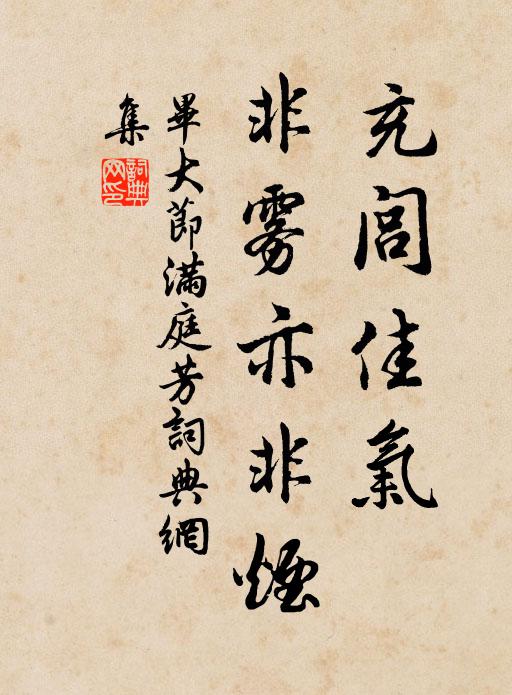 充閭佳氣
非霧亦非煙
畢大節滿庭芳詞典網
集
詞典
網印